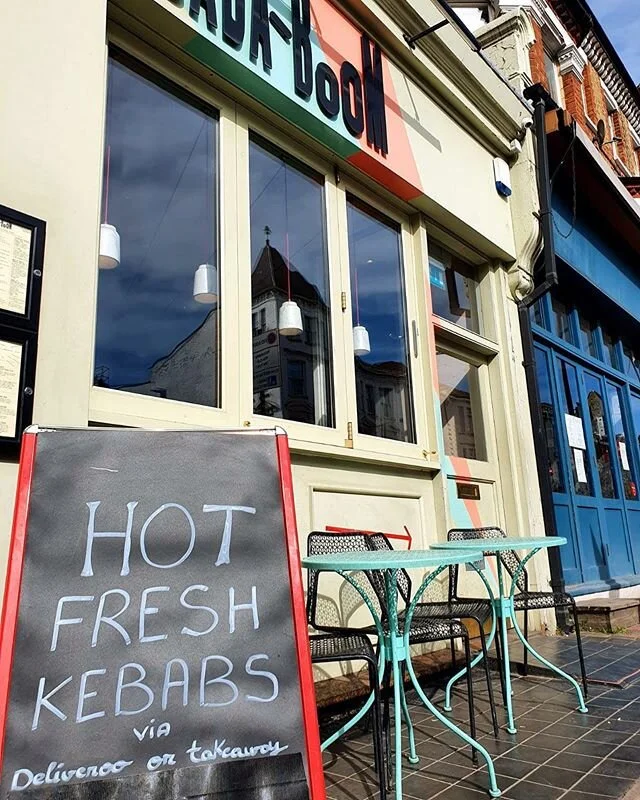 BADA-BOOM
HOT
FRESH
KEBABS
VIA
Deliveroo or takeaway